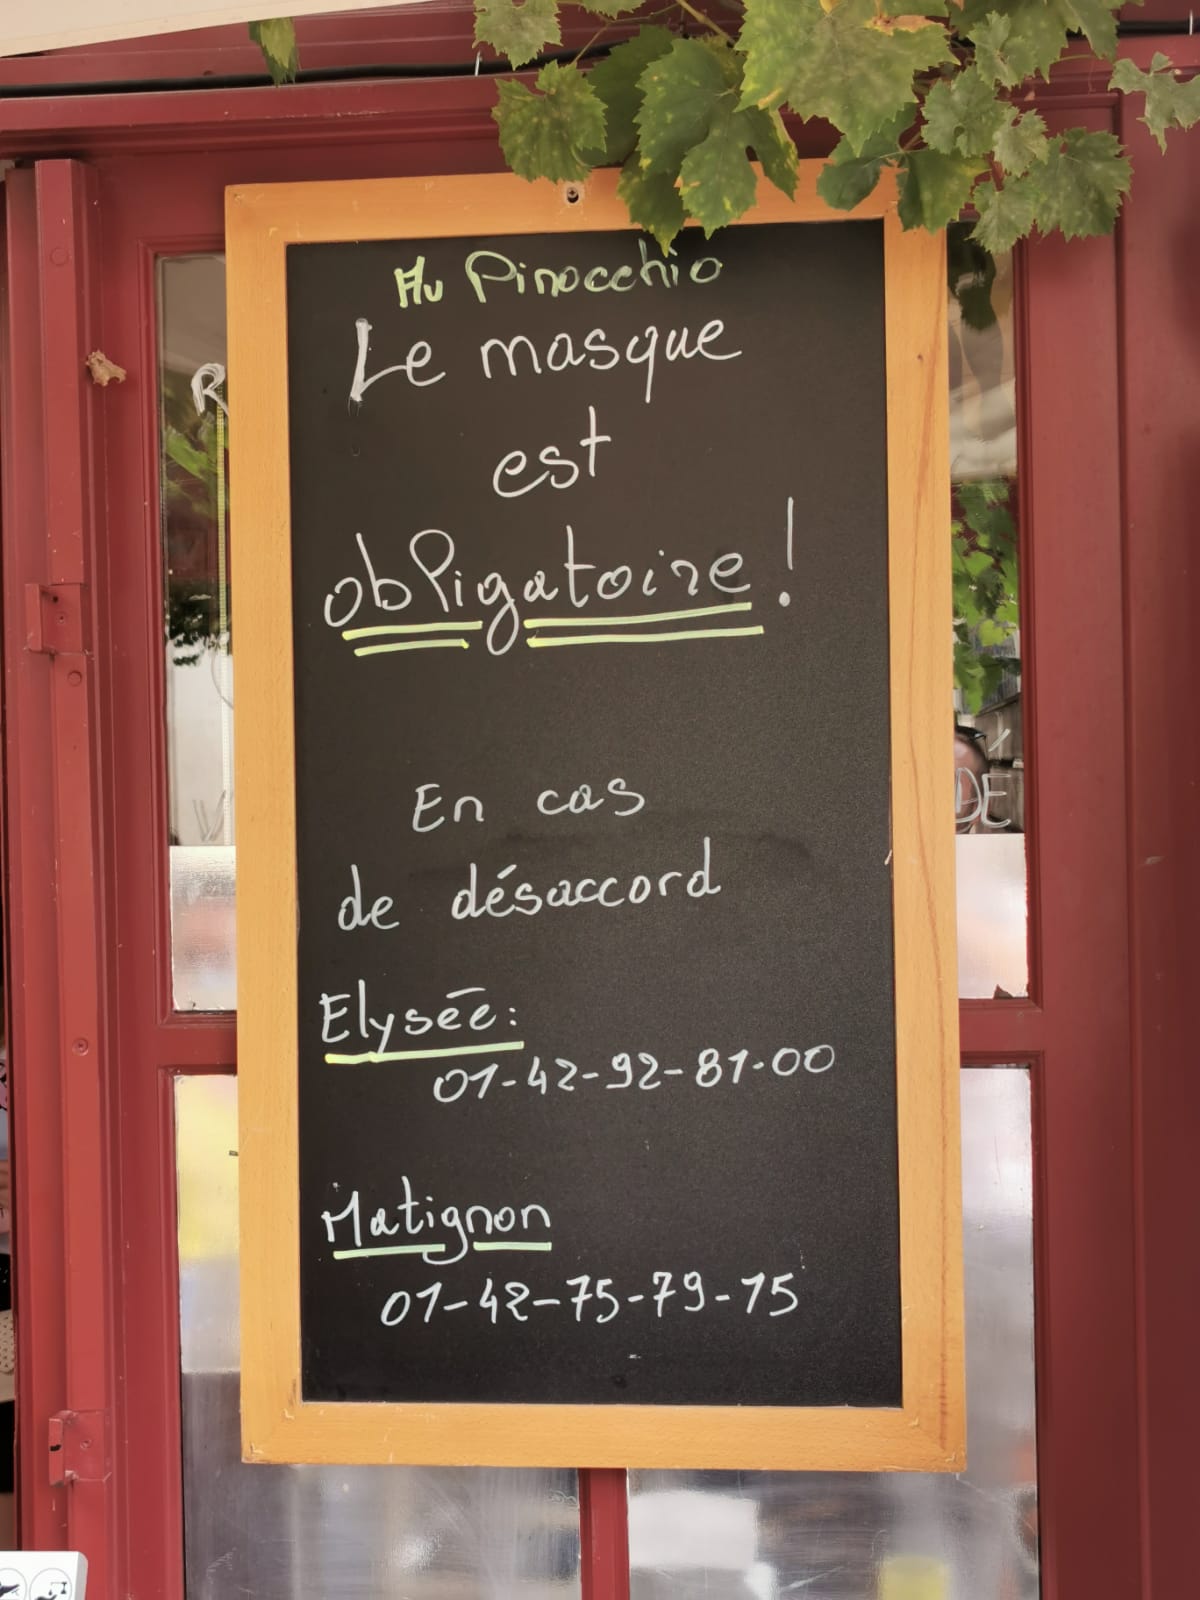 Au Pinocchio
Le masque
est
obligatoire !
En cas
de désaccord
Elysée:
01-42-92-81-00
Matignon
01-42-75-79-15
R
DE